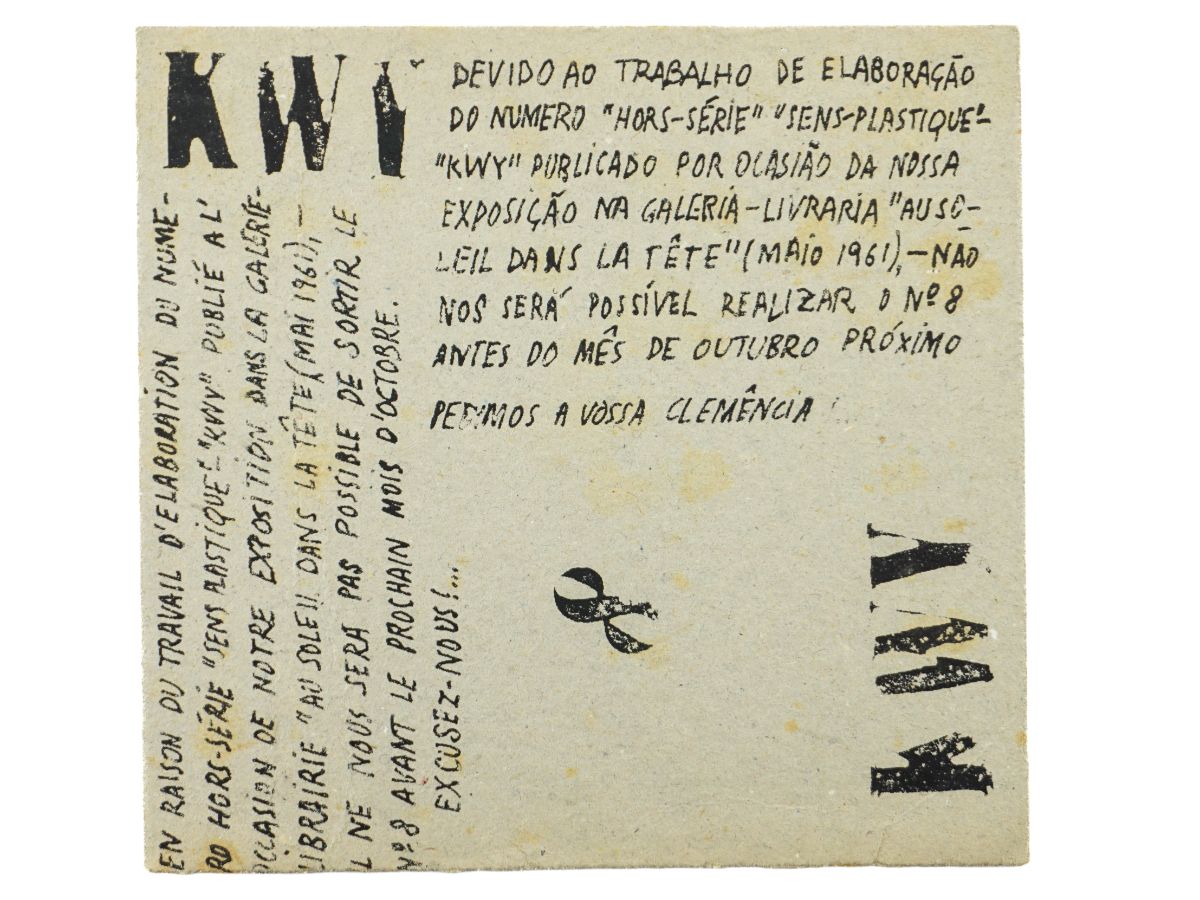 KWY
DEVIDO AO TRABALHO DE ELABORAÇÃO
DO NUMERO "HORS-SÉRIE" "SENS-PLASTIQUE"-
"KWY" PUBLICADO POR OCASIÃO DA NOSSA
EXPOSIÇÃO NA GALERIA-LIVRARIA "AU SO-
LEIL DANS LA TÊTE" (MAIO 1961), - NÃO
NOS SERÁ POSSÍVEL REALIZAR O Nº 8
ANTES DO MÊS DE OUTUBRO PRÓXIMO
PEDIMOS A VOSSA CLEMÊNCIA !
EN RAISON DU TRAVAIL D'ELABORATION DU NUME-
RO HORS-SÉRIE "SENS PLASTIQUE"-"KWY" PUBLIÉ A L'
OCCASION DE NOTRE EXPOSITION DANS LA GALERIE-
LIBRAIRIE "AU SOLEIL DANS LA TÊTE (MAI 1961), -
IL NE NOUS SERA PAS POSSIBLE DE SORTIR LE
Nº 8 AVANT LE PROCHAIN MOIS D'OCTOBRE.
EXCUSEZ-NOUS!...
&
KWY